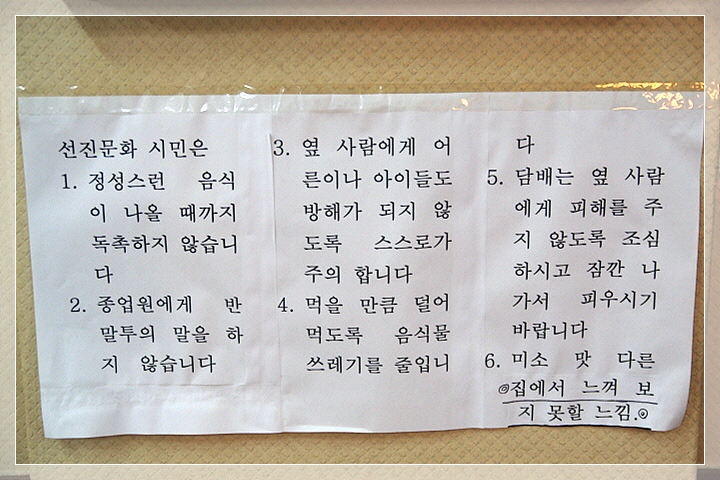 선진문화 시민은
1. 정성스런 음식
이 나올 때까지
독촉하지 않습니
다
2. 종업원에게 반
말투의 말을 하
지 않습니다
3. 옆 사람에게 어
른이나 아이들도
방해가 되지 않
도록 스스로가
주의 합니다
4. 먹을 만큼 덜어
먹도록 음식물
쓰레기를 줄입니
다
5. 담배는 옆 사람
에게 피해를 주
지 않도록 조심
하시고 잠깐 나
가서 피우시기
바랍니다
6. 미소 맛 다른
◎집에서 느껴 보
지 못할 느낌.◎